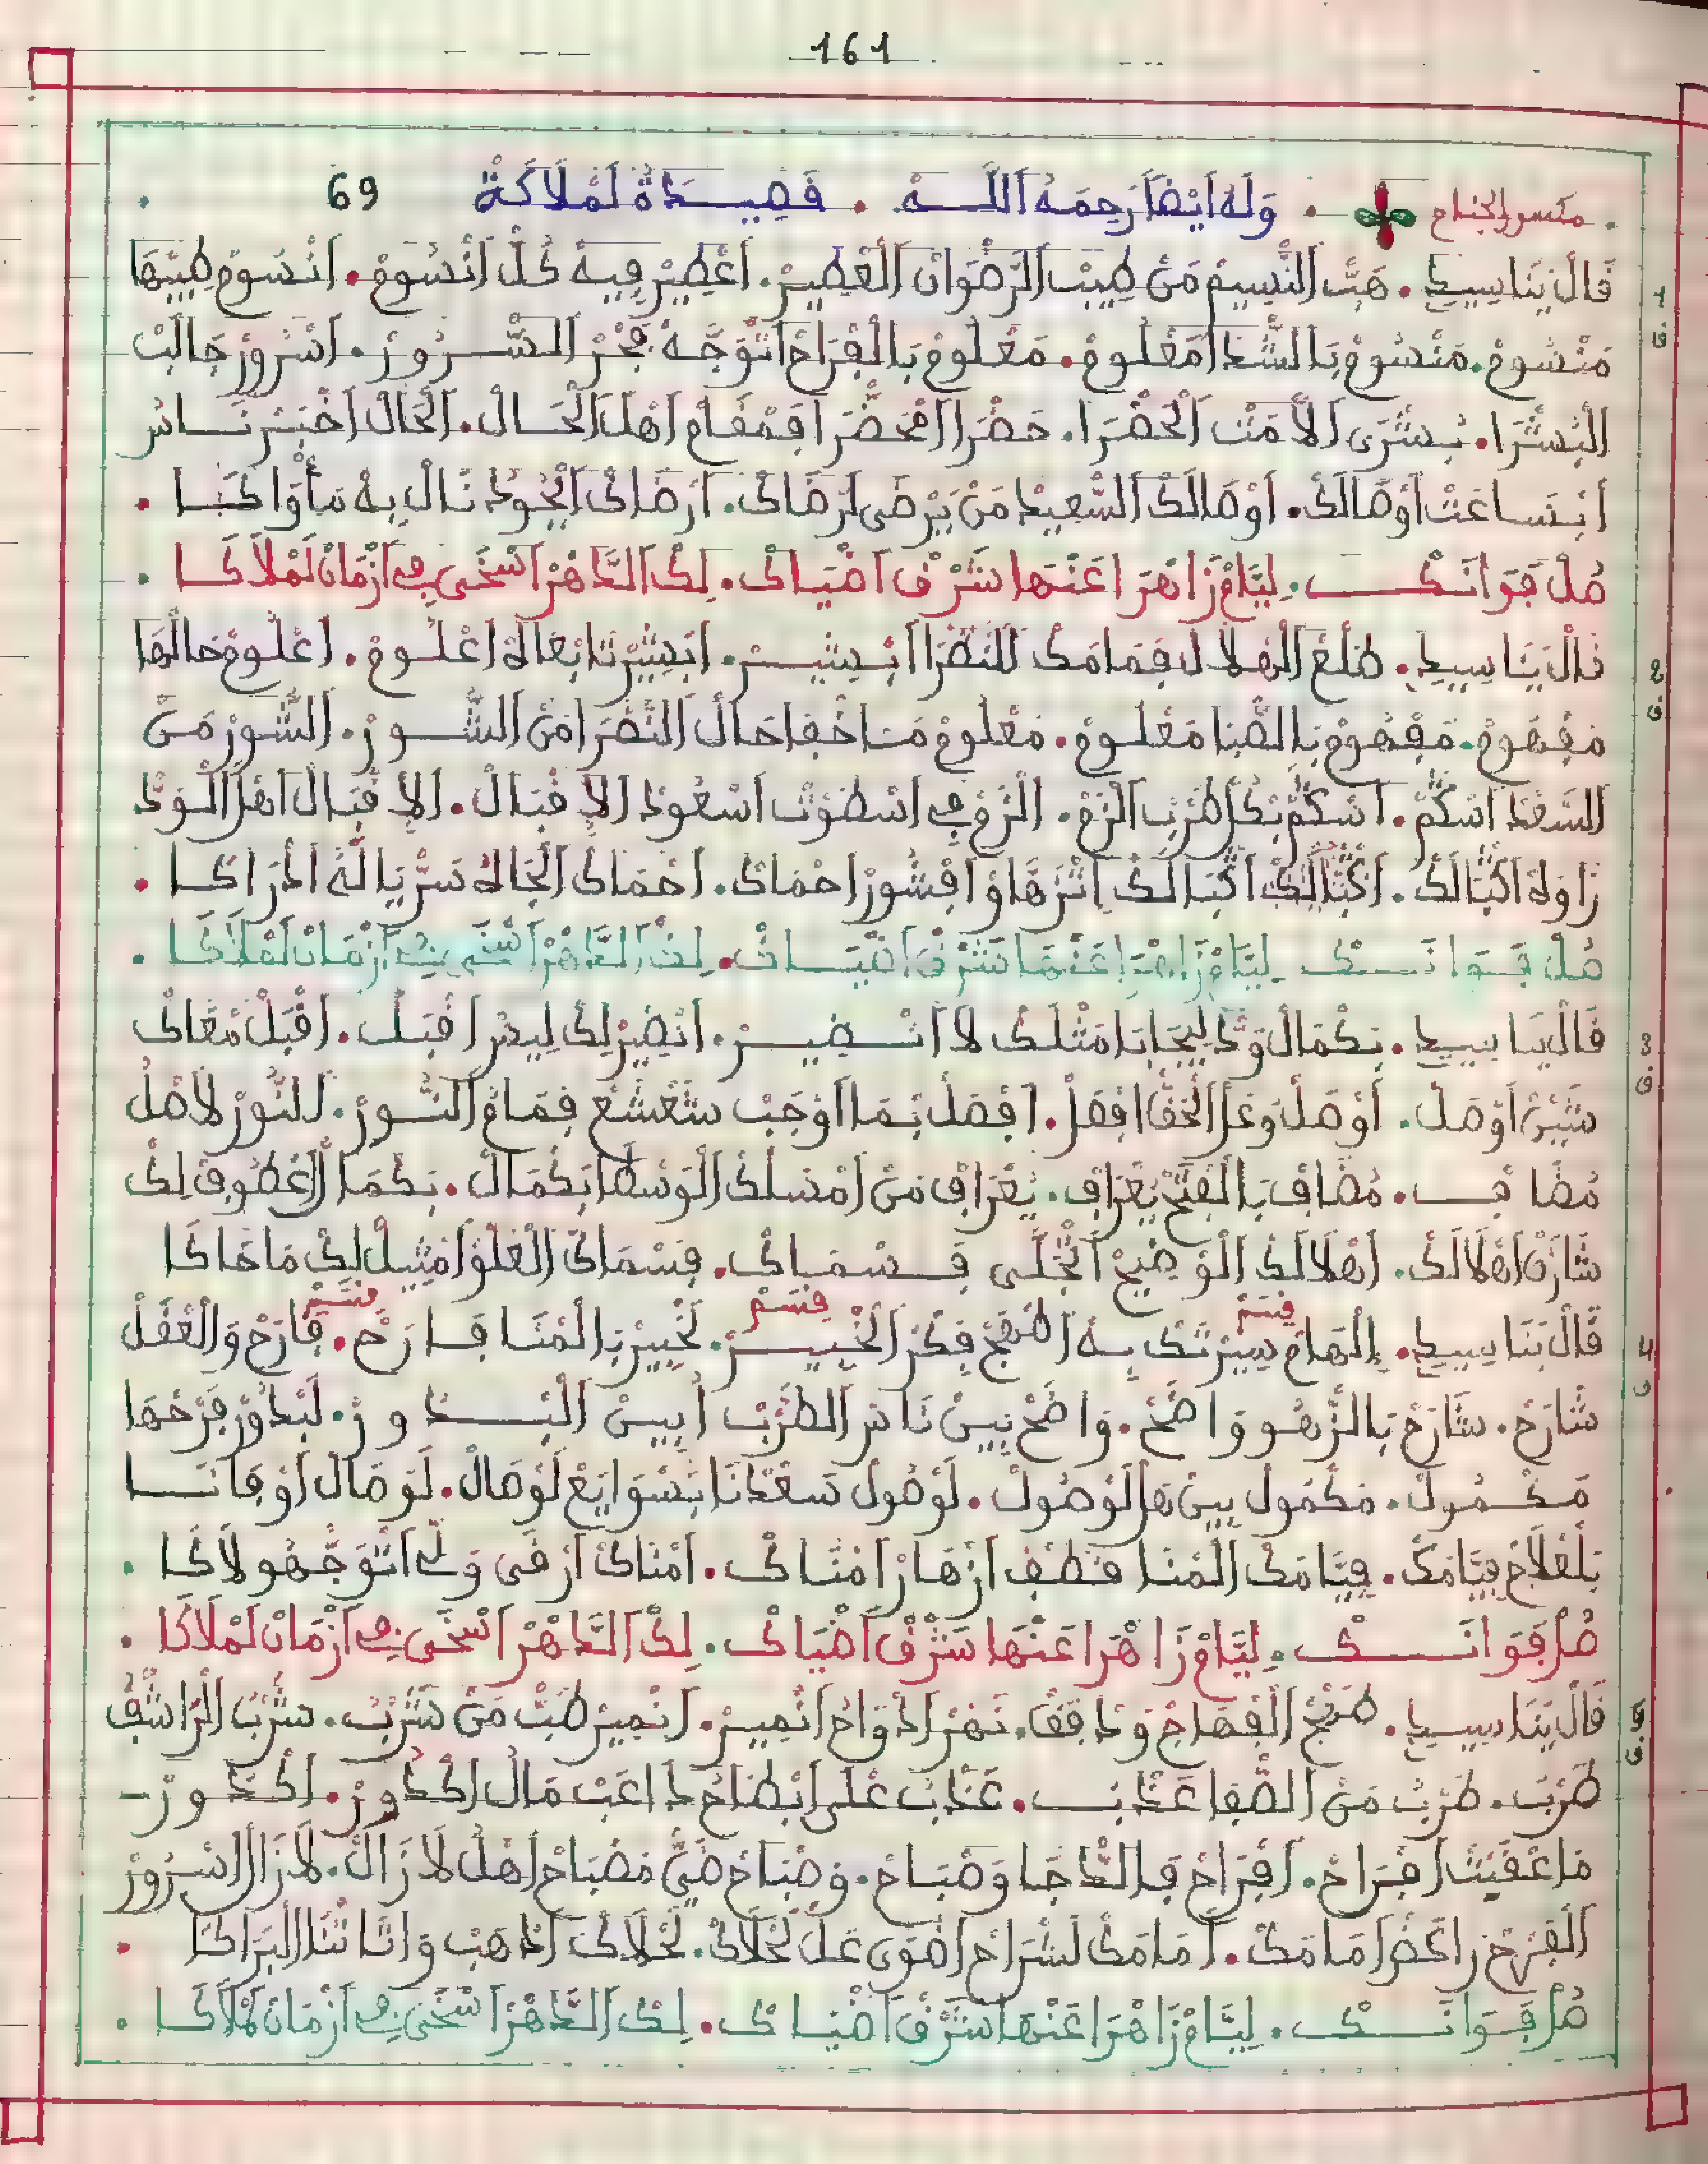 161
مكسور الجناح . وَلَهُ أَيْضاً رَحِمَهُ اَللَّـه . قَصِيـدَةُ لَمْلاَكَةْ 69
1 قَالْ يَنَا سِيدِي . هَبّ اَلنّْسِيمْ مَنْ طِيبْ اَلرَّضْوَانْ اَلْعْطِيرْ . اَعْطِيرْ فِيهْ كُلّْ اَنْسُومْ . اَنْسُومْ طِيبْهَا
ف مَنْسُومْ . مَنْسُومْ بَالشّْدَا مَعْلُومْ . مَعْلُومْ بَالْفْرَاحْ اَتْوَجَّهْ فَجْرْ اَلسّْـرُورْ . اَسْرُورْ جَالَبْ
اَلْبُشْرَا . بُشْرَى اَلاَّمْتْ اَلْحَضْرَا . حَضْرَا اَمْحَضّْرَا فَمْقَامْ اَهْلْ اَلْحَـالْ . اَلْحَالْ اَخْبَرْ نَـاسْ
اَنْسَاعَتْ اَوْصَالَكْ . اَوْصَالَكْ اَلسّْعِيدْ مَنْ يَرْضَى لَرْضَاكْ . اَرْضَاكْ اَلْجُودْ نَالْ بِهْ مَأْوَاكَـا .
صُلْ فَوَانَـكْ . لِيَّامْ زَاهْرَا عَنْهَا شَرْقْ اَضْيَاكْ . لِكْ اَلدَّهْرْ اَسْخَى فِي اَزْمَانْ لَمْلاَكَـا .
2 قَالْ يَنَا سِيدِي . طْلَعْ اَلْهْلاَلْ فَمَامَكْ لَلنَّصْرَا اَبْـشِيـرْ . اَبْشِيرْنَا بْعَالَهْ اَعْلُـومْ . اَعْلُومْ حَالْهَا
ف مَفْهُومْ . مَفْهُومْ بَالضّْيَا مَعْلُـومْ . مَعْلُومْ مَـا خْفَا حَالْ اَلنَّصْرَا مَنْ اَلشُّـورْ . اَلشُّورْ مَنْ
اَلسَّعْدْ اَسْكَمْ . اَسْكَمْ بْكُلّْ طَرْبْ اَلزَّمْ . اَلزَّمْ فِي اَسْطُوتْ اَسْعُودْ اَلاِقْبَالْ . اَلاِقْبَالْ اَهْلْ اَلْوَدّْ
زَاوْلَهْ اَكْبَالَكْ . اَكْبَالَكْ اَكْبَالَكْ اَتْزَهَاوْ اَفْشُورْ اَحْمَاكْ . اَحْمَاكْ اَلْجَاهْ سَرّْ يَالَهْ اَدْرَاكَـا .
صُلْ فَـوَانَـكْ . لِيَّامْ زَاهْرَا عَنْهَا شَرْقْ اَضْيَـاكْ . لِكْ اَلدَّهْرْ اَسْخَى فِي اَزْمَانْ لَمْلاَكَـا .
3 قَالْ يَنَا سِيدِي . بَكْمَالْ وَدّْ لِيجَابَا مَثْلَكْ لاَ اَنْـضِيـرْ . اَنْضِيرْ لِكْ لِيسْ اَقْبَـلْ . اَقْبَلْ مْعَاكْ
ف شَيّْنْ اَوْصَلْ . اَوْصَلْ وَعْدْ اَلْحَقّْ اَفْصَلْ . اَفْصَلْ بْمَا اَوْجَبْ شَعْشَعْ فَمَاقْ اَلنُّـورْ . لَلنُّورْ لاَصْلْ
مُضَافْ . مُضَافْ بَالْفَتْحْ يَعْرَافْ . يَعْرَافْ مَنْ اَمْسَلْكْ اَلْوَسْطَا بَكْمَالْ . بَكْمَالْ اَعْطُوفْ لِكْ
شَارَتْ اَهْلاَلَكْ . اَهْلاَلَكْ اَلْوَضِيحْ اَتْجَلَّى فَـسْمَـاكْ . فَسْمَاكْ اَلْعْلُو اَمْثِيلْ لِكْ مَاحَاكَا
قسم قسم قسم
4 قَالْ يَنَا سِيدِي . اِلْهَامْ سِيرْتَكْ بِهْ اَطْهَجْ فِكْرْ اَلْخْبِيـرْ . لَخْبِيرْ بَالْمْنَا فَـارَحْ . فَارَحْ وَالْعْقَلْ
ف شَارَحْ . شَارَحْ بَالزّْهُـو وَاضَحْ . وَاضَحْ بِينْ نَاسْ اَلطّْرَبْ اَبِينْ اَلْبْـدُورْ . لَبْدُورْ فَرْحْهَا
مَكْـمُولْ . مَكْمُولْ بِينْ هَلْ لَوْصُولْ . لَوْصُولْ سَعْدْنَا بَسْوَايَعْ لَوْصَالْ . لَوْصَالْ اَوْفَانَـا
بَلْغْلاَمْ فِيَّامَكْ . فِيَّامَكْ اَلْمْنَا قْطَفْ اَزْهَارْ اَمْنَاكْ . اَمْنَاكْ اَرْقَى وَلِّي اَتْوَجْهُو لاَكَا .
صُلْ فَوَانَـكْ . لِيَّامْ زَاهْرَا عَنْهَا شَرْقْ اَضْيَاكْ . لِكْ اَلدَّهْرْ اَسْخَى فِي اَزْمَانْ لَمْلاَكَا .
5 قَالْ يَنَا سِيدِي . طَهْجْ اَلْفْهَاجْ وَدَافَقْ . نَهْرْ اَدْوَاحْ اَنْمِيـرْ . اَنْمِيرْ طَبْتْ مَنْ شَرْبْ . شَرْبْ اَلرَّاشْفْ
ف طَرْبْ . طَرْبْ مَنْ اَلصّْفَا عَذْبْ . عَذْبْ عْلَى اَبْطَاحْ دَاعَبْ مَالْ اَكْدُورْ . اَكْدُورْ
مَاعَقْبَتْ اَفْرَاحْ . اَفْرَاحْ فَالدّْجَا وَصْبَـاحْ . وَصْبَاحْ ضَيّْ مَصْبَاحْ اَهْلْ لاَزَالْ . لاَزَالْ اَسْرُورْ
اَلْفَرْحْ رَاكَضْ اَمَامَكْ . اَمَامَكْ لَشْرَاحْ اَضْوَى عْلَى لَحْلاَكْ . لَحْلاَكْ اَدْهَبْ وَاتَّاتْنَا اَلْبَرَاكَا .
صُلْ فَـوَانَـكْ . لِيَّامْ زَاهْرَا عَنْهَا شَرْقْ اَضْيَـاكْ . لِكْ اَلدَّهْرْ اَسْخَى فِي اَزْمَانْ لَمْلاَكَـا .